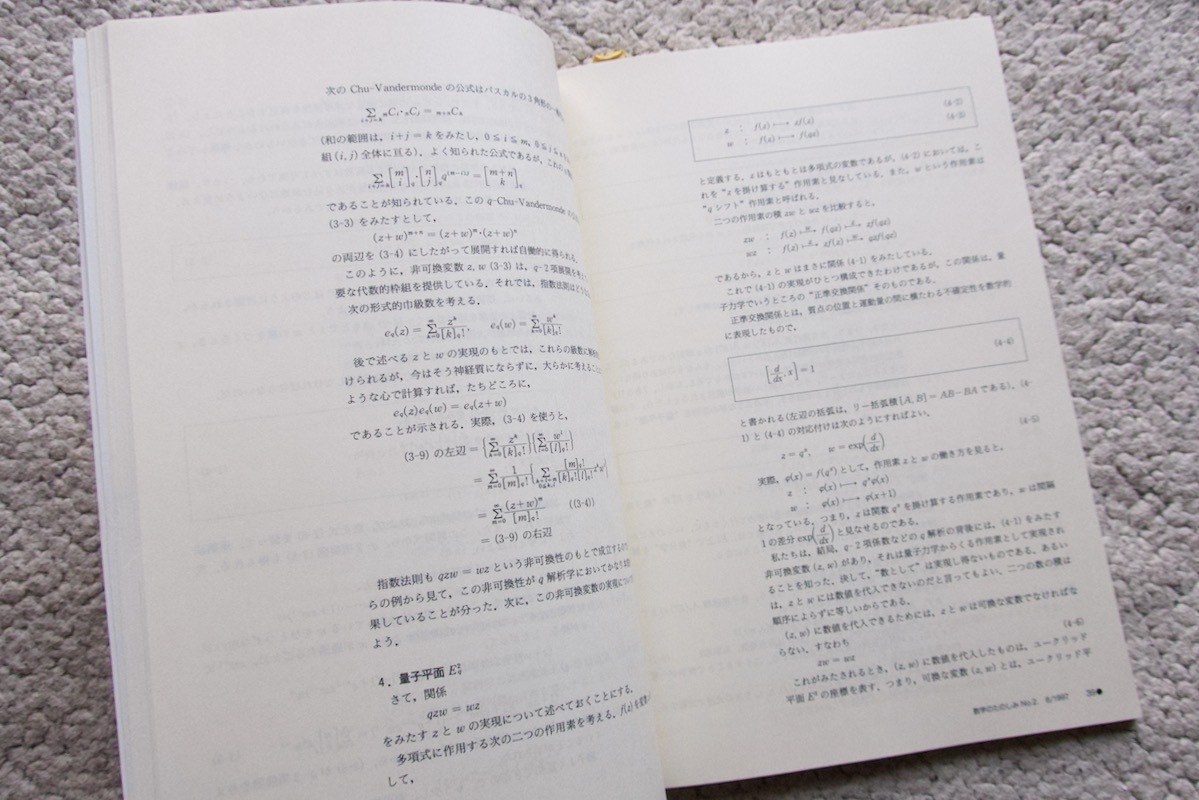 次の Chu-Vandermonde の公式はパスカルの3角形の一
∑ i+j=k mCi・nCj = m+nCk
(和の範囲は，i+j=k をみたし，0≦i≦m, 0≦j≦n
組(i, j)全体に亘る)．よく知られた公式であるが，これの
∑ i+j=k [m i]q・[n j]q q^(m-i)j = [m+n k]q
であることが知られている．この q-Chu-Vandermonde の
(3-3)をみたすとして，
(z+w)^m+n = (z+w)^m・(z+w)^n
の両辺を (3-4) にしたがって展開すれば自働的に得られる．
このように，非可換変数 z, w (3-3) は，q-2項展開を
要な代数的枠組を提供している．それでは，指数法則はどう
次の形式的巾級数を考える．
eq(z) = ∑ k=0 ∞ z^k/[k]q!, eq(w) = ∑ k=0 ∞ w^k/[k]q!
後で述べる z と w の実現のもとでは，これらの級数に解析的
けられるが，今はそう神経質にならずに，大らかに考えること
ような心で計算すれば，たちどころに，
eq(z)eq(w) = eq(z+w)
であることが示される．実際，(3-4) を使うと，
(3-9) の左辺 = {∑ k=0 ∞ z^k/[k]q!}{∑ l=0 ∞ w^l/[l]q!}
= ∑ m=0 ∞ 1/[m]q! {∑ k+l=m 0≦k,l [m]q!/[k]q![l]q! z^k w^l}
= ∑ m=0 ∞ (z+w)^m/[m]q! ((3-4))
= (3-9) の右辺
指数法則も qzw = wz という非可換性のもとで成立するもの
らの例から見て，この非可換性が q 解析学においてかなり
果していることが分った．次に，この非可換変数の実現につい
よう．
4．量子平面 E²q
さて，関係
qzw = wz
をみたす z と w の実現について述べておくことにする．
多項式に作用する次の二つの作用素を考える．f(z) を変数
して，
z : f(z) ⟼ zf(z) (4-2)
w : f(z) ⟼ f(qz) (4-3)
と定義する．z はもともとは多項式の変数であるが，(4-2) においては，こ
れを “z を掛け算する” 作用素と見なしている．また，w という作用素は
“q シフト” 作用素と呼ばれる．
二つの作用素の積 zw と wz を比較すると，
zw : f(z) ⟼w f(qz) ⟼z zf(qz)
wz : f(z) ⟼z zf(z) ⟼w qzf(qz)
であるから，z と w はまさに関係 (4-1) をみたしている．
これで (4-1) の実現がひとつ構成できたわけであるが，この関係は，量
子力学でいうところの “正準交換関係” そのものである．
正準交換関係とは，質点の位置と運動量の間に横たわる不確定性を数学的
に表現したもので，
[d/dx, x] = 1 (4-4)
と書かれる (左辺の括弧は，リー括弧積 [A, B] = AB−BA である)．(4-
1) と (4-4) の対応付けは次のようにすればよい．
z = q^x, w = exp(d/dx) (4-5)
実際，φ(x) = f(q^x) として，作用素 z と w の働き方を見ると，
z : φ(x) ⟼ q^xφ(x)
w : φ(x) ⟼ φ(x+1)
となっている．つまり，z は関数 q^x を掛け算する作用素であり，w は間隔
1 の差分 exp(d/dx) と見なせるのである．
私たちは，結局，q-2 項係数などの q 解析の背後には，(4-1) をみたす
非可換変数 (z, w) があり，それは量子力学からくる作用素として実現され
ることを知った．決して，“数として” は実現し得ないものである．あるい
は，z と w には数値を代入できないのだと言ってもよい．二つの数の積は
順序によらずに等しいからである．
(z, w) に数値を代入できるためには，z と w は可換な変数でなければな
らない．すなわち
zw = wz (4-6)
これがみたされるとき，(z, w) に数値を代入したものは，ユークリッド
平面 E² の座標を表す．つまり，可換な変数 (z, w) とは，ユークリッド平
数学のたのしみ No.2 6/1997 39●